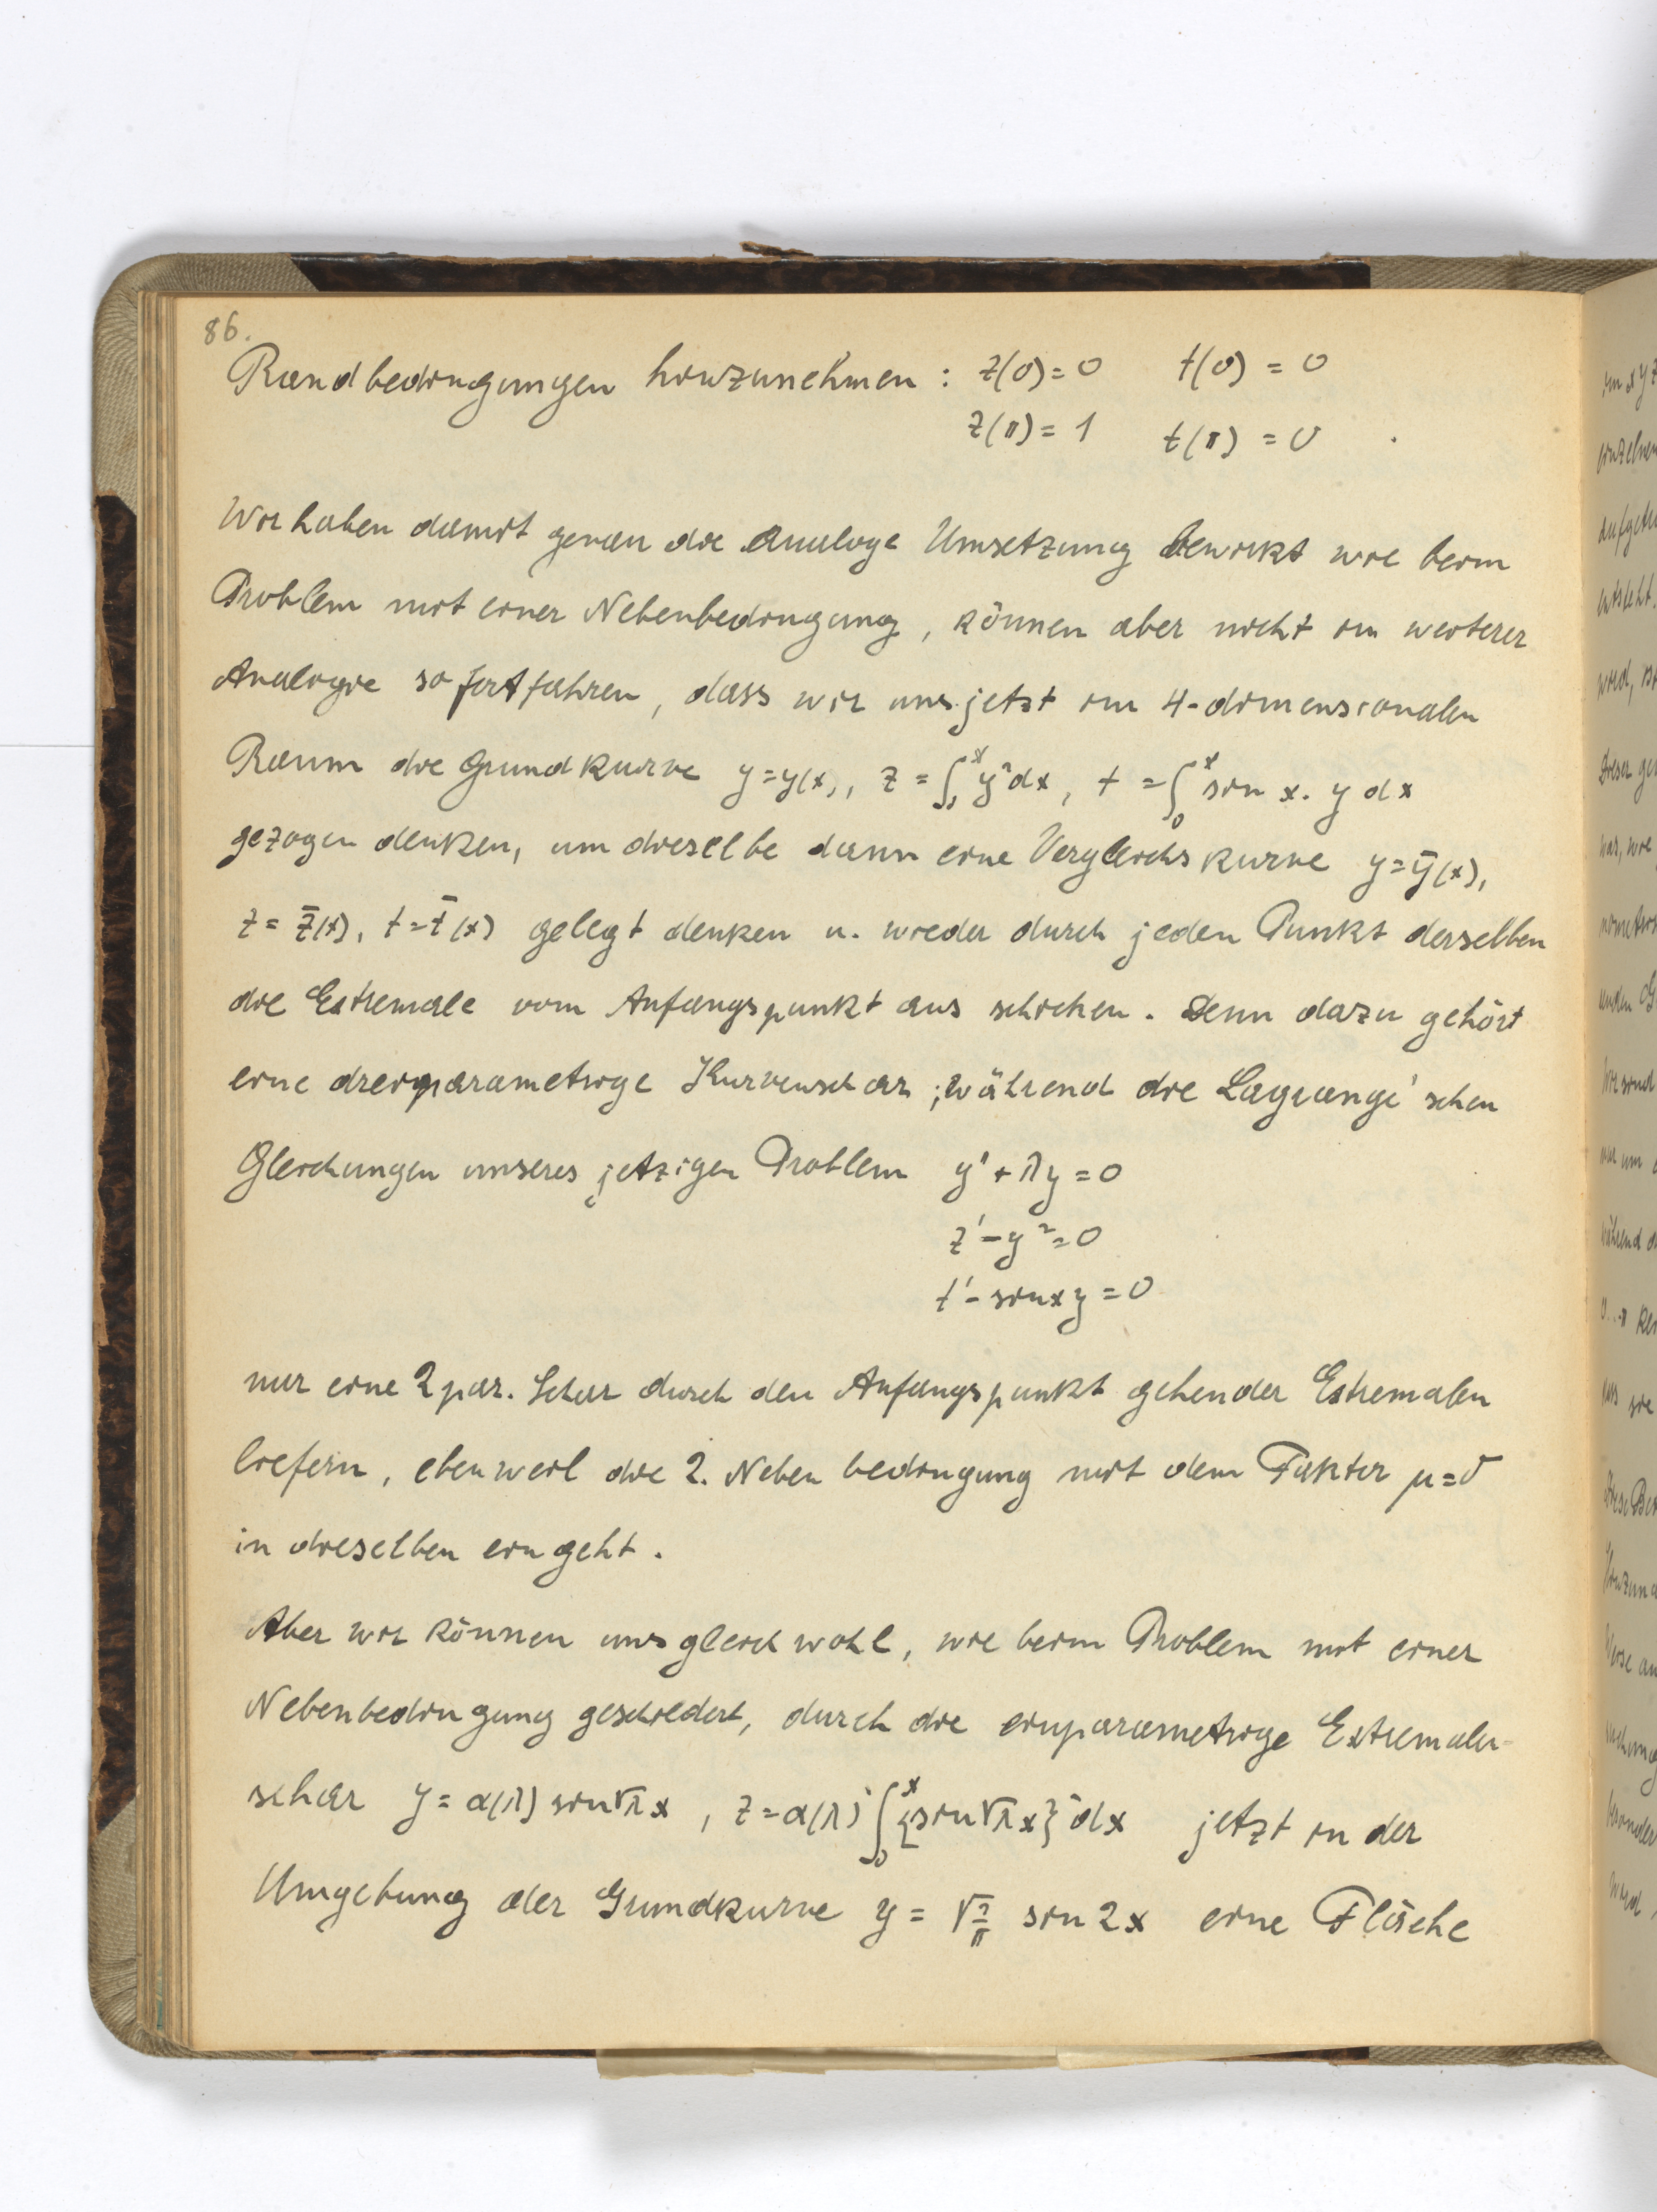 86.
Randbedingungen hinzunehmen : z(0)=0 t(0) = 0
z(π)= 1 t(π) = 0 .
Wir haben damit genau die analoge Umsetzung bewirkt wie beim
Problem mit einer Nebenbedingung, können aber nicht in weiterer
Analogie so fortfahren, dass wir uns jetzt im 4-dimensionalen
Raum die Grundkurve y=y(x), z = ∫₀ˣ y² dx, t = ∫₀ˣ sin x. y dx
gezogen denken, um dieselbe dann eine Vergleichskurve y=ȳ(x),
z= z̄(x), t=t̄(x) gelegt denken u. wieder durch jeden Punkt derselben
die Extremale vom Anfangspunkt aus schicken. Denn dazu gehört
eine dreiparametrige Kurvenschar ; während die Lagrange'schen
Gleichungen unseres jetzigen Problem y'' + λy = 0
z' - y² = 0
t' - sin x y = 0
nur eine 2 par. Schar durch den Anfangspunkt gehender Extremalen
liefern, eben weil die 2. Nebenbedingung mit dem Faktor μ=0
in dieselben eingeht.
Aber wir können uns gleichwohl, wie beim Problem mit einer
Nebenbedingung geschildert, durch die einparametrige Extremalen-
schar y = α(λ) sin√λ x , z = α(λ)² ∫₀ˣ {sin√λ x}² dx jetzt in der
Umgebung der Grundkurve y = √2/π sin 2x eine Fläche